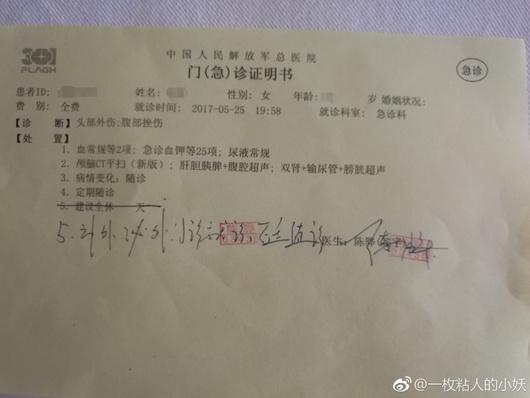 301
PLAGH
中国人民解放军总医院
门(急)诊证明书
急诊
患者ID: 姓名: 性别: 女 年龄: 岁 婚姻状况:
费 别: 全费 就诊时间: 2017-05-25 19:58 就诊科室: 急诊科
【诊 断】头部外伤;腹部挫伤
【处 置】
1. 血常规等2项; 急诊血钾等25项; 尿液常规
2. 颅脑CT平扫(新版); 肝胆胰脾+腹腔超声; 双肾+输尿管+膀胱超声
3. 病情变化: 随诊
4. 定期随诊
5. 建议全休 天
5.
医生: 陈
@一枚粘人的小妖